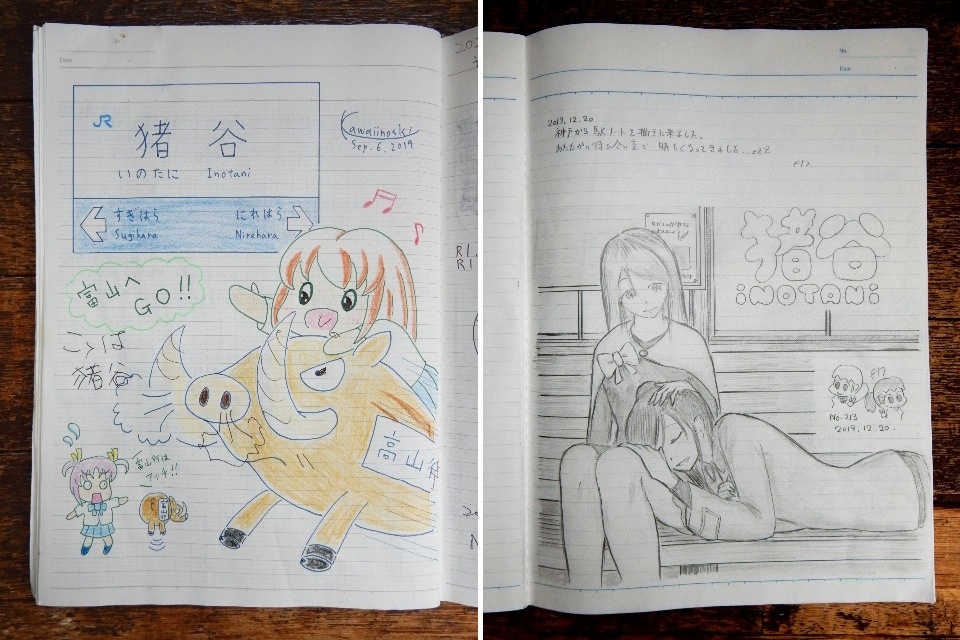 Date
JR
猪谷
いのたに Inotani
すぎはら にれはら
Sugihara Nirehara
Kawaiinoski
Sep. 6, 2019
富山へ
GO!!
こゝは
猪谷
高山
富山行は
アッチ!!
No.
Date
2019.12.20
神戸から駅ノートを描きに来ました。
あたたかい待ち合い室で 眠くなってきました...zzZ
猪谷
iNOTANi
No.213
2019.12.20.